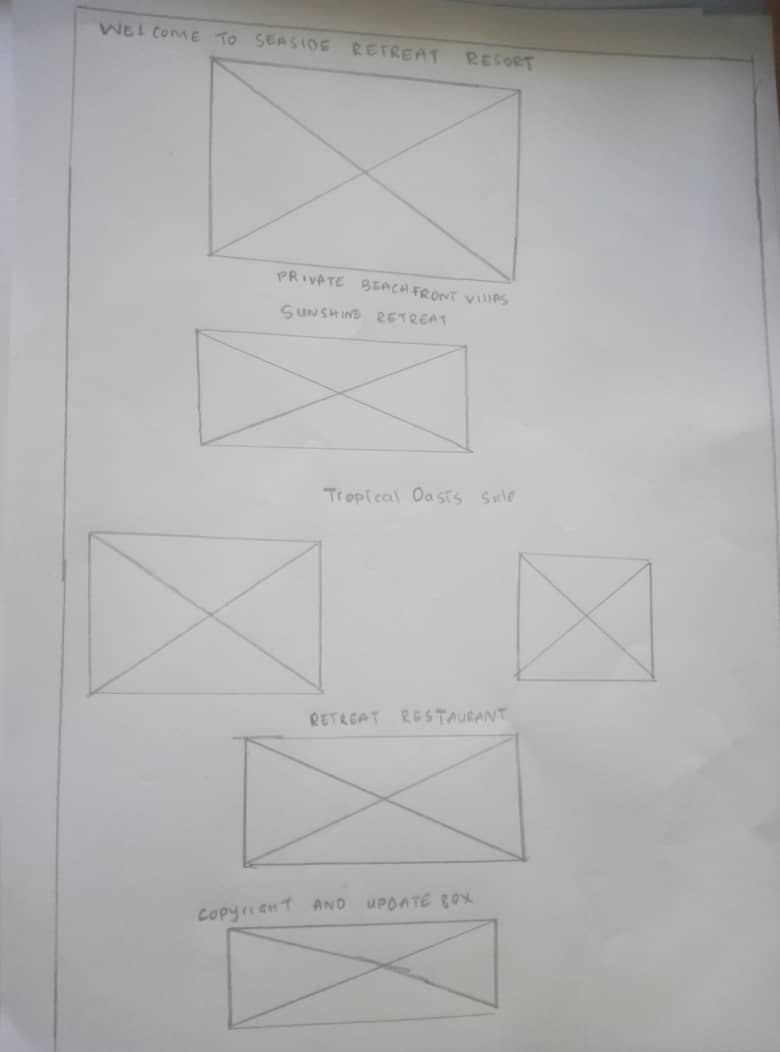 WELCOME TO SEASIDE RETREAT RESORT
PRIVATE BEACHFRONT VIllAS
SUNSHINE RETREAT
Tropical Oasis
RETREAT RESTAURANT
COPYRIGHT AND UPDATE BOX